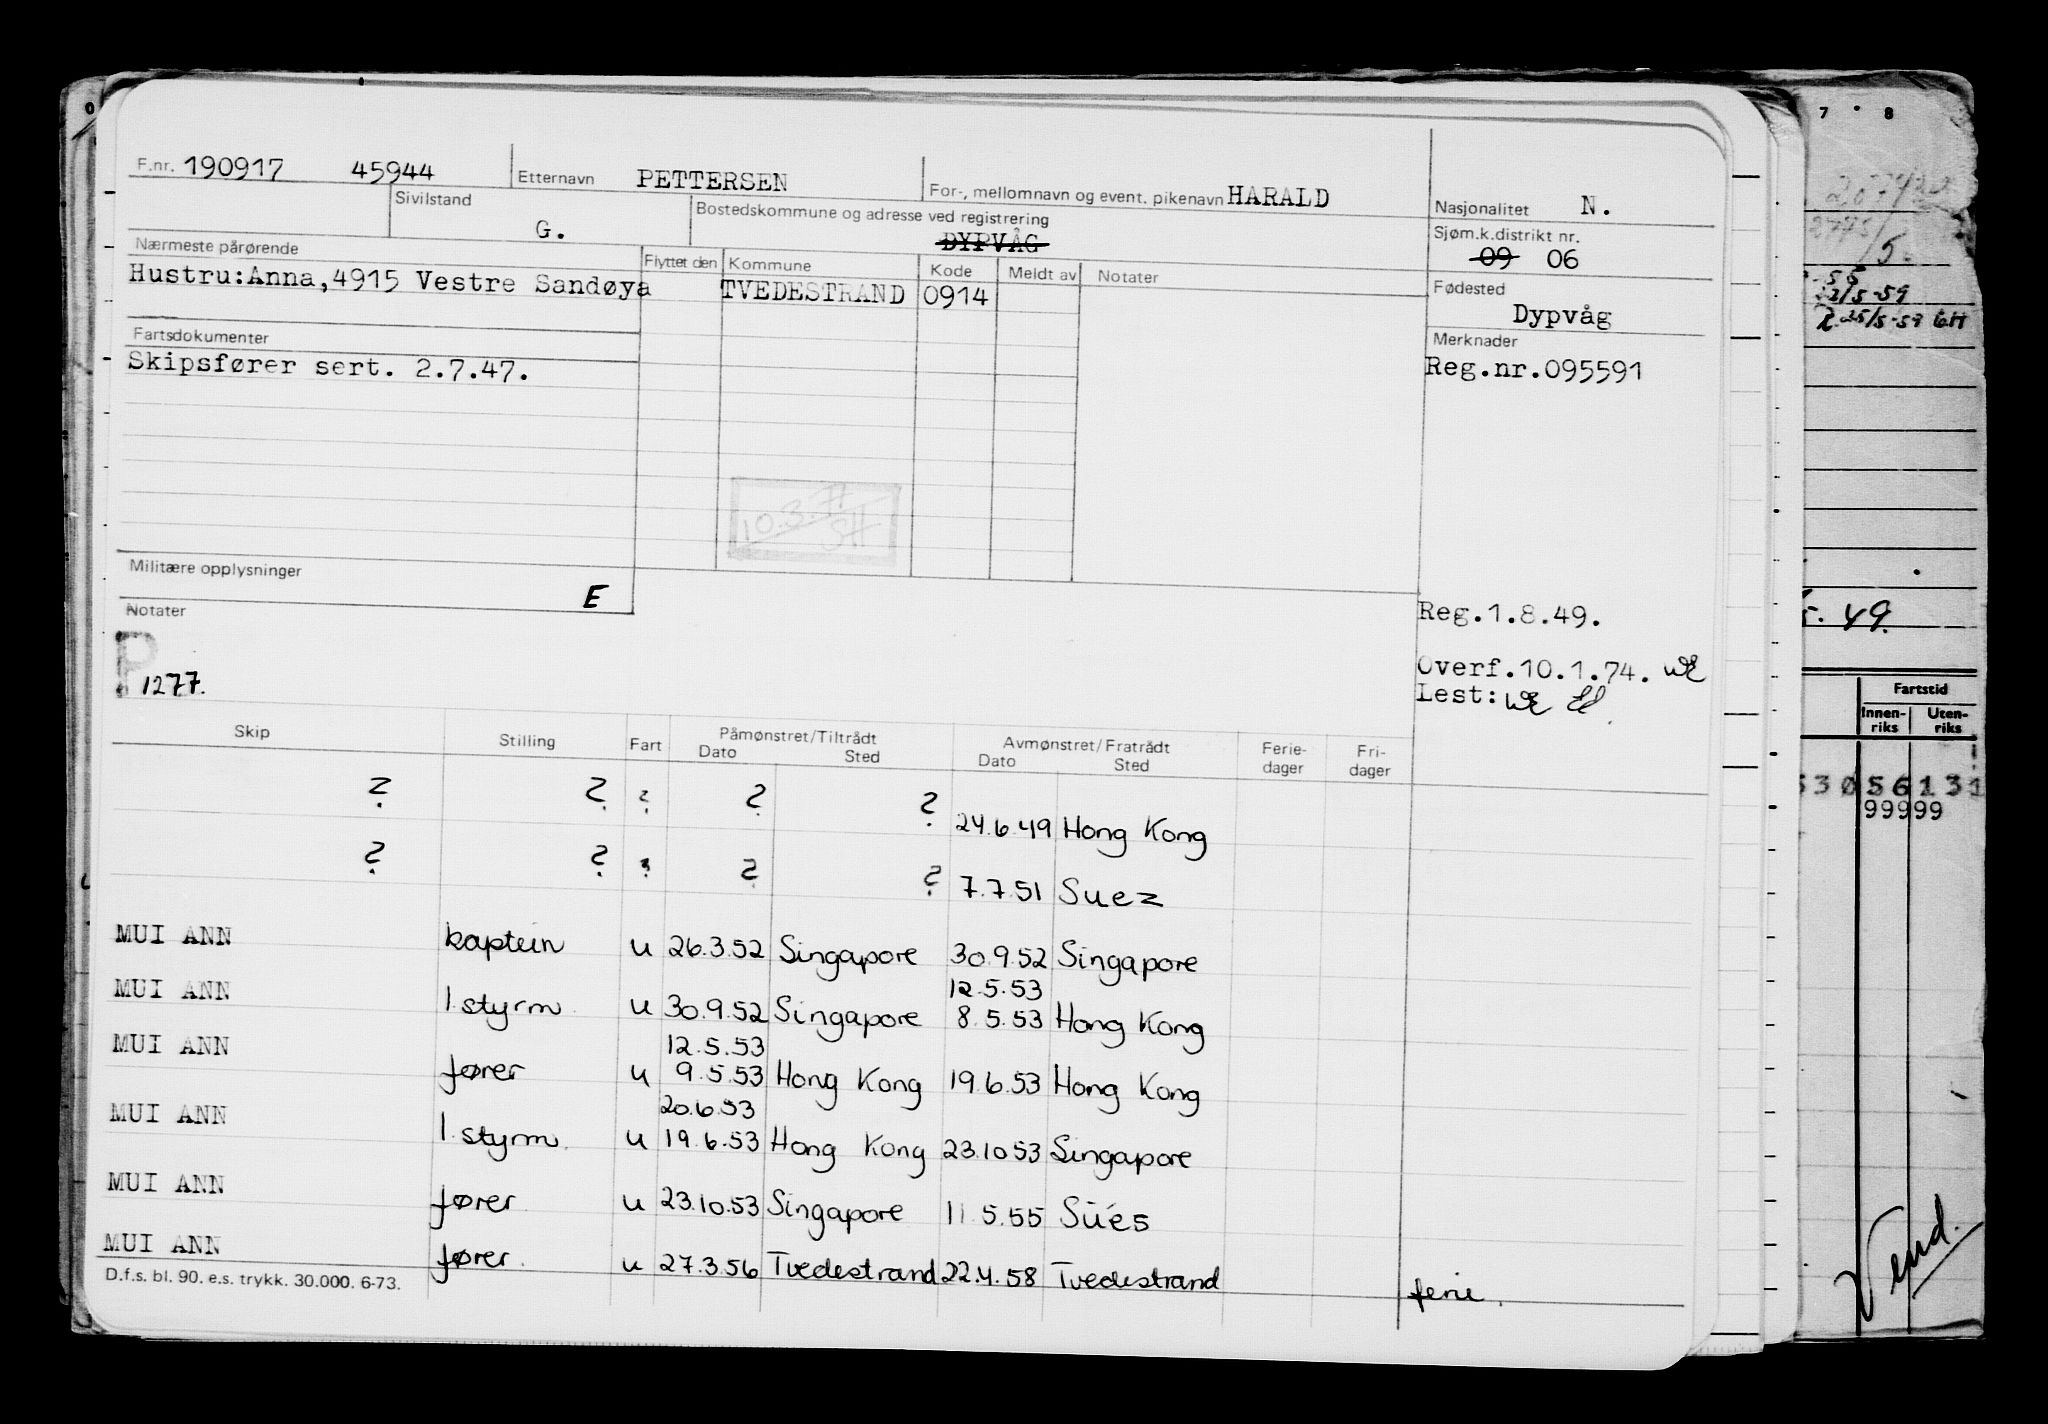 F.nr. 190917 45944 Etternavn PETTERSEN For-, mellomnavn og event. pikenavn HARALD Nasjonalitet N.
Sivilstand G. Bostedskommune og adresse ved registrering DYPVÅG Sjøm.k.distrikt nr. 09 06
Nærmeste pårørende Flyttet den Kommune Kode Meldt av Notater Fødested
Hustru:Anna,4915 Vestre Sandøya TVEDESTRAND 0914 Dypvåg
Fartsdokumenter Merknader
Skipsfører sert. 2.7.47. Reg.nr.095591
10.3.77
SH
Militære opplysninger E
Notater Reg.1.8.49.
P
1277.
Overf.10.1.74. WE
Lest: WE
Skip Stilling Fart Påmønstret/Tiltrådt Avmønstret/Fratrådt Ferie- Fri-
Dato Sted Dato Sted dager dager
? ? ? ? ? 24.6.49 Hong Kong
? ? ? ? ? 7.7.51 Suez
MUI ANN kaptein u 26.3.52 Singapore 30.9.52 Singapore
12.5.53
MUI ANN 1.styrm. u 30.9.52 Singapore 8.5.53 Hong Kong
12.5.53
MUI ANN fører u 9.5.53 Hong Kong 19.6.53 Hong Kong
20.6.53
MUI ANN 1.styrm. u 19.6.53 Hong Kong 23.10.53 Singapore
MUI ANN fører u 23.10.53 Singapore 11.5.55 Súes
MUI ANN fører. u 27.3.56 Tvedestrand 22.4.58 Tvedestrand ferie.
D.f.s. bl. 90. e.s. trykk. 30.000. 6-73.
0
7 8
22/5-59
R.25/5-59 GH
49.
Fartstid
Innen-
riks Uten-
riks
53056131
99999
Vend.